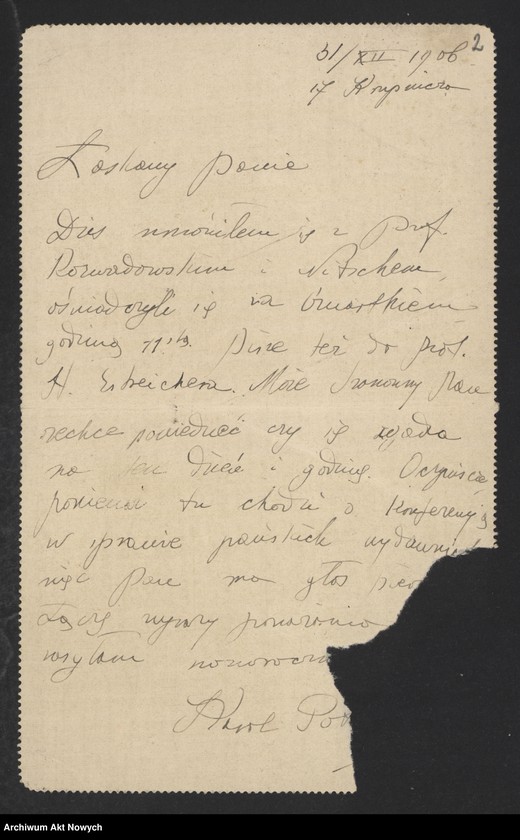 2
31/XII 1906
17 Krupnicza
Łaskawy Panie
Dziś umówiłem się z Prof.
Rozwadowskim i Nitschem,
oświadczyli się za czwartkiem
godziną 11tą. Piszę też do prof.
St. Estreichera. Może Szanowny Pan
zechce powiedzieć czy się zgadza
na ten dzień i godzinę. Oczywiście
ponieważ tu chodzi o Konferencję
w sprawie pańskich
więc Pan ma głos
Łączę wyrazy poważania
wsyłam
Karol
Archiwum Akt Nowych